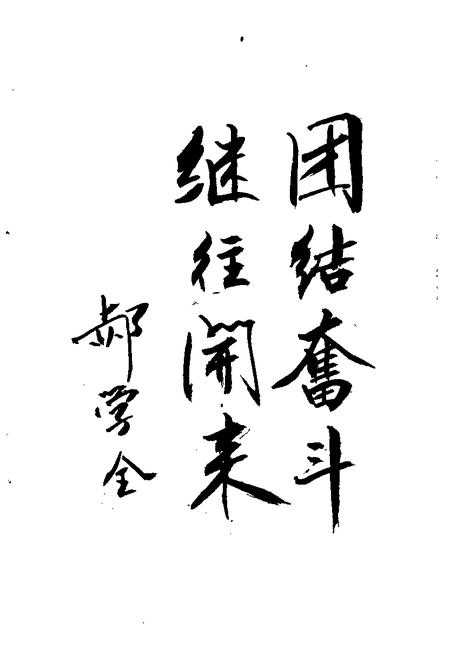 团结奋斗
继往開来
郝学全